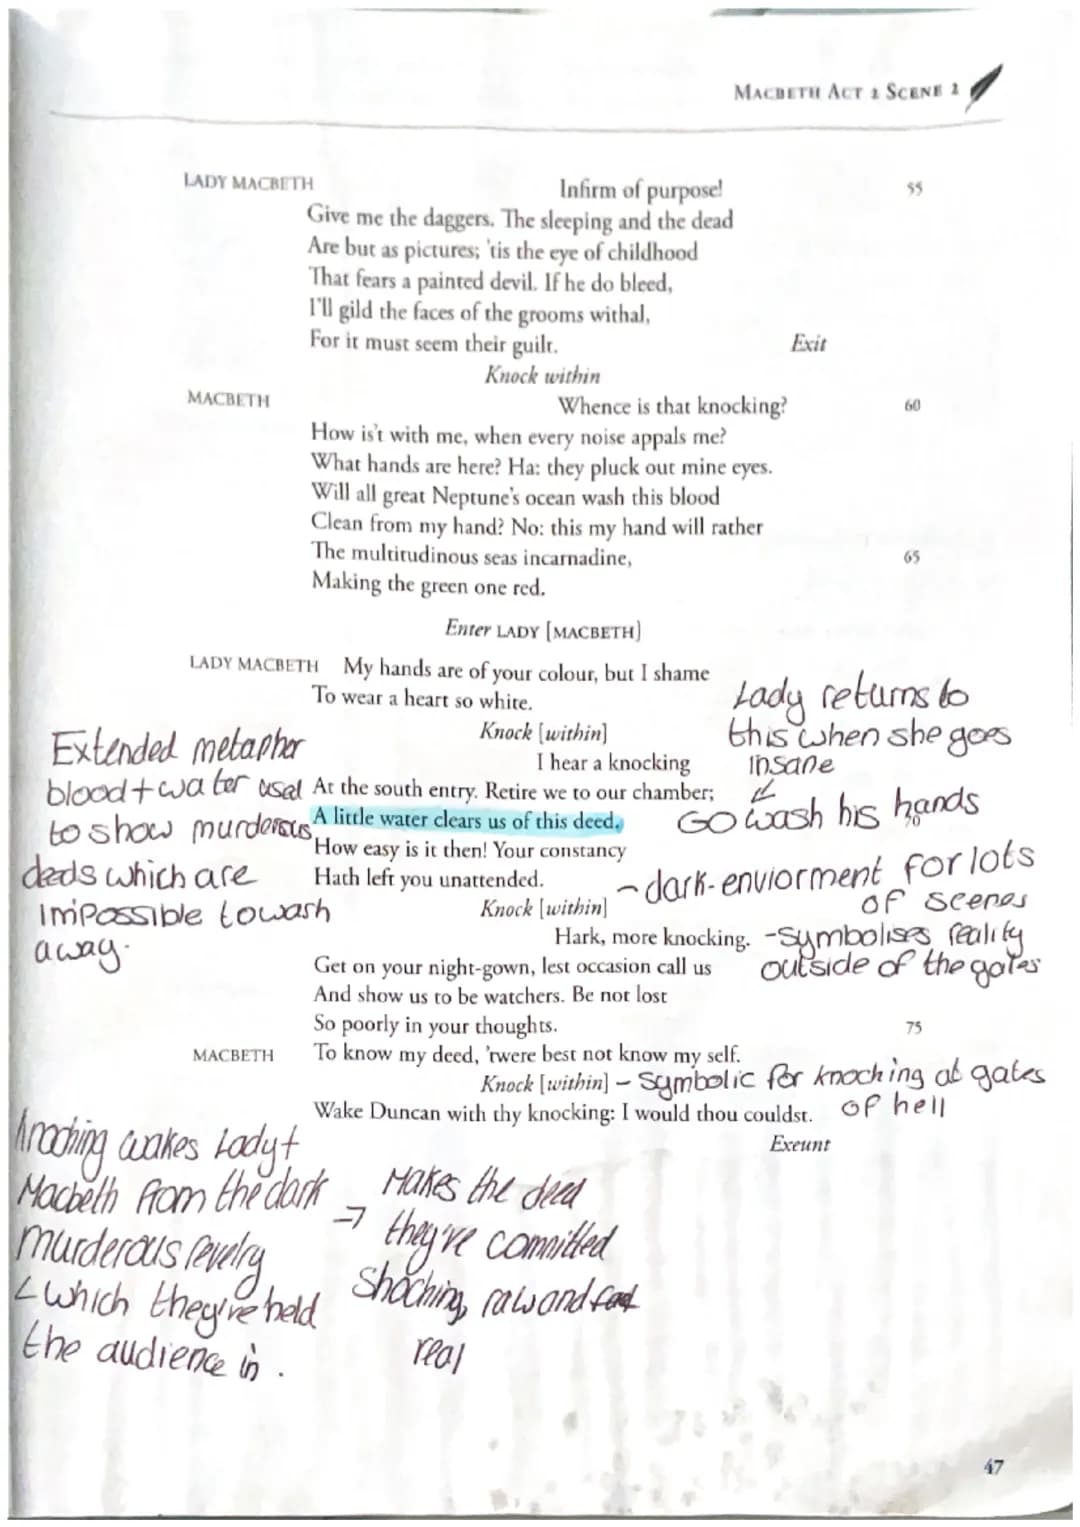 MACBETH ACT 2 SCENE 2
LADY MACBETH Infirm of purpose! 55
Give me the daggers. The sleeping and the dead
Are but as pictures; 'tis the eye of childhood
That fears a painted devil. If he do bleed,
I'll gild the faces of the grooms withal,
For it must seem their guilt. Exit
Knock within
MACBETH Whence is that knocking? 60
How is't with me, when every noise appals me?
What hands are here? Ha: they pluck out mine eyes.
Will all great Neptune's ocean wash this blood
Clean from my hand? No: this my hand will rather
The multitudinous seas incarnadine, 65
Making the green one red.
Enter LADY [MACBETH]
LADY MACBETH My hands are of your colour, but I shame
To wear a heart so white.
Knock [within]
I hear a knocking
At the south entry. Retire we to our chamber;
A little water clears us of this deed. 70
How easy is it then! Your constancy
Hath left you unattended.
Knock [within]
Hark, more knocking.
Get on your night-gown, lest occasion call us
And show us to be watchers. Be not lost
So poorly in your thoughts. 75
MACBETH To know my deed, 'twere best not know my self.
Knock [within]
Wake Duncan with thy knocking: I would thou couldst.
Exeunt
Lady returns to
this when she goes
insane
Go wash his hands
Extended metaphor
blood + water used
to show murderous
deeds which are
impossible to wash
away.
- dark-enviorment for lots
of scenes
- Symbolises reality
outside of the gates
- Symbolic for knocking at gates
of hell
Knocking wakes Lady +
Macbeth from the dark
murderous revelry
which they're held
the audience in.
Makes the deed
they're committed
Shocking, raw and
real
47